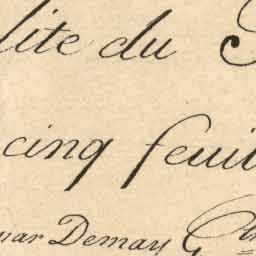 lite du
cinq feuil
mar Demay G